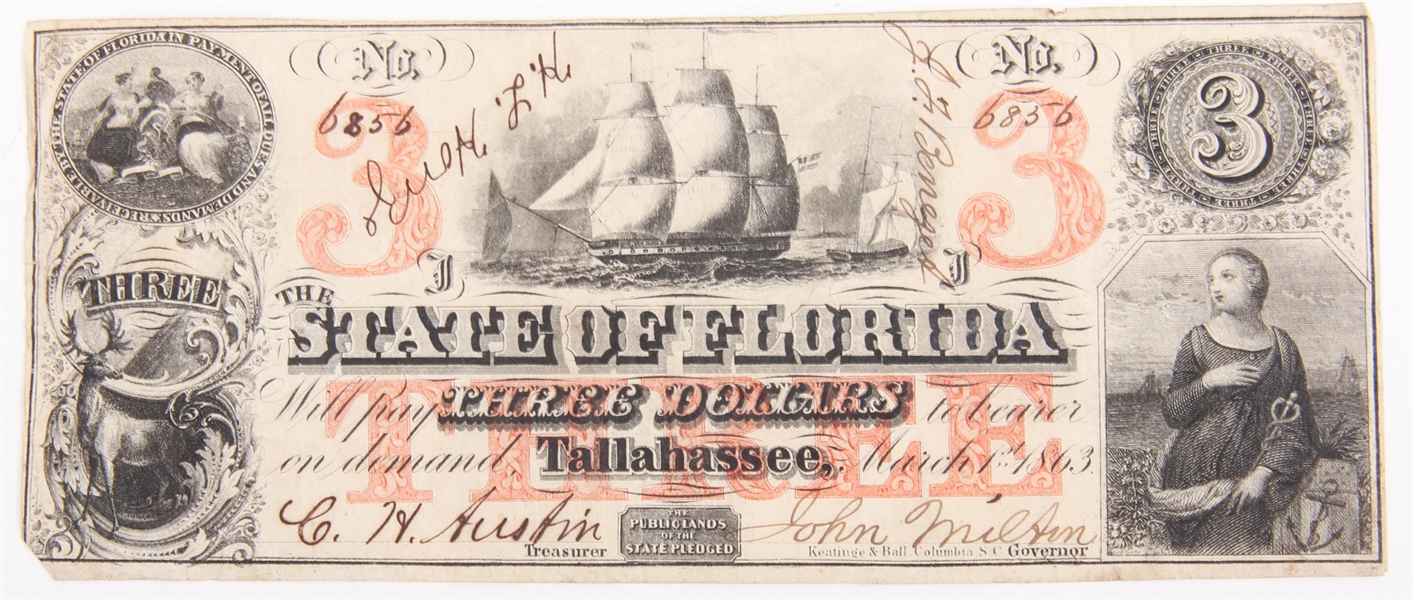 RECEIVABLE BY THE STATE OF FLORIDA IN PAYMENT OF ALL DUES AND DEMANDS
No. No.
3 3
6856 6856
3
THREE THREE THREE THREE THREE THREE THREE THREE
J J
THREE
THE
STATE OF FLORIDA
Will pay THREE DOLLARS to bearer
THREE
on demand Tallahassee, March 1st 1863.
C. H. Austin
John Milton
THE
PUBLIC LANDS
OF THE
STATE PLEDGED
Treasurer
Keatinge & Ball, Columbia S.C. Governor